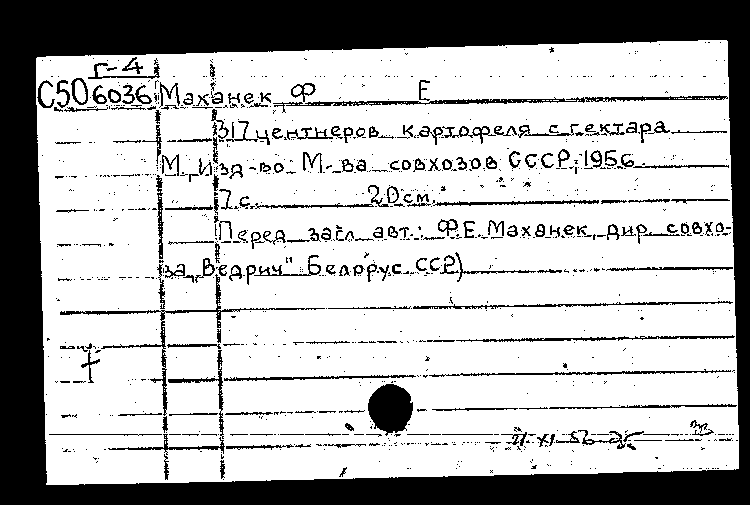 Г-4
С506036 Маханек, Ф Е
317 центнеров картофеля с гектара
М., Изд-во М-ва совхозов СССР, 1956.
7 с. 20см.
Перед загл. авт.: Ф.Е. Маханек, дир. совхо-
за „Ведрич" Белорус. ССР)
XI 56